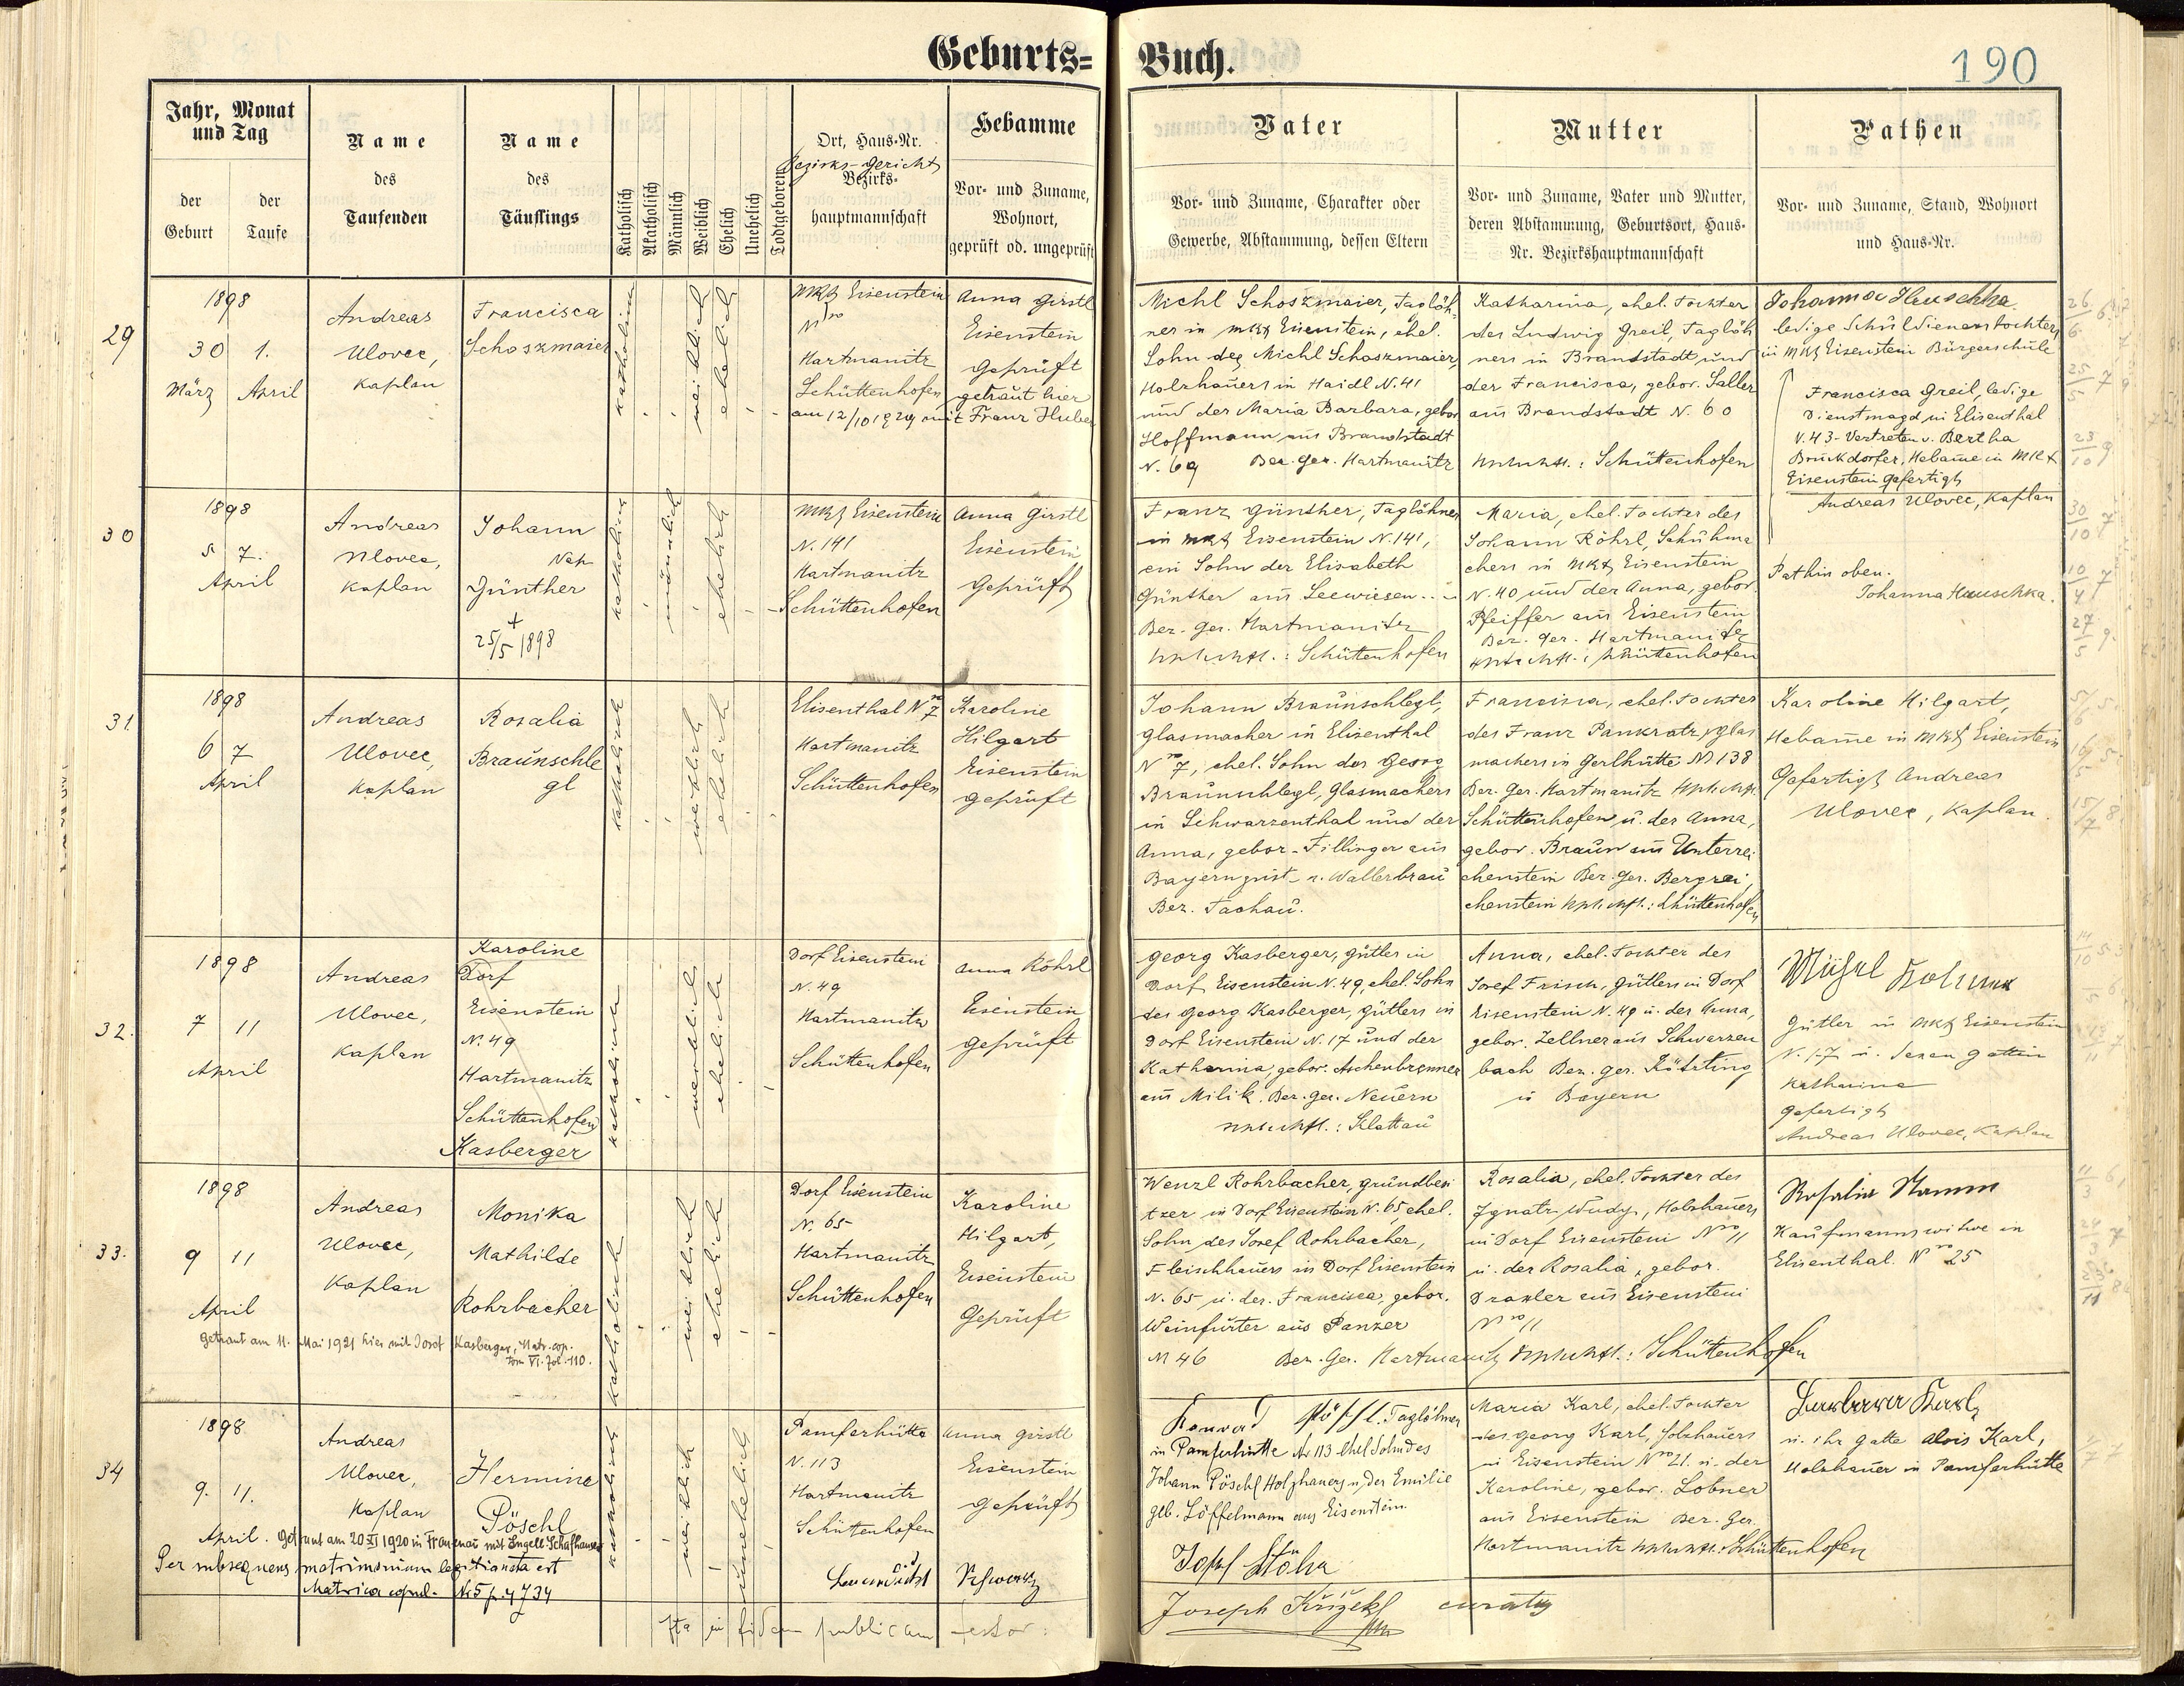 Geburts=Buch.
190
Jahr, Monat und Tag
der Geburt
der Taufe
Name des Taufenden
Name des Täuflings
Katholisch
Akatholisch
Männlich
Weiblich
Ehelich
Unehelich
Todtgeboren
Ort, Haus-Nr.
Bezirks-Gericht
Bezirks-
hauptmannschaft
Hebamme
Vor- und Zuname,
Wohnort,
geprüft od. ungeprüft
Vater
Vor- und Zuname, Charakter oder
Gewerbe, Abstammung, dessen Eltern
Mutter
Vor- und Zuname, Vater und Mutter,
deren Abstammung, Geburtsort, Haus-
Nr. Bezirkshauptmannschaft
Pathen
Vor- und Zuname, Stand, Wohnort
und Haus-Nr.
29
1898
30 1.
März April
Andreas
Ulovec,
Kaplan
Francisca
Schoszmaier
katholisch
weiblich
ehelich
Mkt Eisenstein
Hartmanitz
Schüttenhofen
Anna Girstl
Eisenstein
Geprüft
getraut hier
am 12/10 1929 mit Franz Huber
Michl Schoszmaier, Taglöh-
ner in Mkt Eisenstein, ehel.
Sohn des Michl Schoszmaier,
Holzhauers in Haidl N. 41
und der Maria Barbara, gebor
Hoffmann aus Brandstadt
N. 69 Bez. Ger. Hartmanitz
Katharina, ehel. Tochter
des Ludwig Greil, Taglöh
ners in Brandstadt und
der Francisca, gebor. Saller
aus Brandstadt N. 60
Schüttenhofen
Johanna Hauschka
ledige Schuldienerstochter
in Mkt Eisenstein Bürgerschule
Francisca Greil, ledige
Dienstmagd in Elisenthal
N. 43 - Vertreten v. Bertha
Bruckdorfer, Hebame in Mkt
Eisenstein gefertigt
Andreas Ulovec, Kaplan
30
1898
5 7.
April
Andreas
Ulovec,
Kaplan
Johann
Nep.
Günther
+
25/5 1898
katholisch
männlich
ehelich
Mkt Eisenstein
N. 141
Hartmanitz
Schüttenhofen
Anna Girstl
Eisenstein
Geprüft
Franz Günther, Taglöhner
in Mkt Eisenstein N. 141,
ein Sohn der Elisabeth
Günther aus Seewiesen
Bez. Ger. Hartmanitz
Schüttenhofen
Maria, ehel. Tochter des
Johann Röhrl, Schuhma
chers in Mkt Eisenstein
N. 40 und der Anna, gebor.
Pfeiffer aus Eisenstein
Bez. Ger. Hartmanitz
Schüttenhofen
Pathin oben.
Johanna Hauschka.
31.
1898
6 7
April
Andreas
Ulovec,
Kaplan
Rosalia
Braunschle
gl
katholisch
weiblich
ehelich
Elisenthal Nro 7
Hartmanitz
Schüttenhofen
Karoline
Hilgart
Eisenstein
geprüft
Johann Braunschlegl,
Glasmacher in Elisenthal
Nro 7, ehel. Sohn des Georg
Braunschlegl, Glasmachers
in Schwarzenthal und der
Anna, gebor. Fillinger aus
Bayern
Bez. Tachau.
Francisca, ehel. Tochter
des Franz Pankratz, Glas
machers in Gerlhütte N 138
Bez. Ger. Hartmanitz
Schüttenhofen u. der Anna,
gebor. Braun aus Unterrei
chenstein Bez. Ger. Bergrei,
chenstein Schüttenhofen
Karoline Hilgart,
Hebame in Mkt Eisenstein
Gefertigt Andreas
Ulovec, Kaplan.
32.
1898
7 11
April
Andreas
Ulovec,
Kaplan
Karoline
Dorf
Eisenstein
N. 49
Hartmanitz
Schüttenhofen
Kasberger
katholisch
weiblich
ehelich
Dorf Eisenstein
N. 49
Hartmanitz
Schüttenhofen
Anna Röhrl
Eisenstein
geprüft
Georg Kasberger, Gütler in
Dorf Eisenstein N. 49, ehel. Sohn
des Georg Kasberger, Gütlers in
Dorf Eisenstein N. 17 und der
Katharina, gebor. Aschenbrenner
aus Milik. Bez. Ger. Neuern
Klattau
Anna, ehel. Tochter des
Josef Frisch, Gütlers in Dorf
Eisenstein N. 49 u. der Anna,
gebor. Zellner aus Schwarzen
bach Bez. Ger. Kötzting
in Bayern
Gütler in Mkt Eisenstein
N. 17 u. dessen Gattin
Katharina
gefertigt
Andreas Ulovec, Kaplan
33.
1898
9 11
April
Andreas
Ulovec,
Kaplan
Monika
Mathilde
Rohrbacher
Getraut am 11. Mai 1921 hier mit Josef Kasberger, Matr. cop.
tom VI. fol. 110.
katholisch
weiblich
ehelich
Dorf Eisenstein
N. 65
Hartmanitz
Schüttenhofen
Karoline
Hilgart,
Eisenstein
Geprüft
Wenzl Rohrbacher, Grundbesi
tzer in Dorf Eisenstein N. 65, ehel.
Sohn des Josef Rohrbacher,
Fleischhauers in Dorf Eisenstein
N. 65 u. der Francisca, gebor.
Weinfurter aus Panzer
N 46 Bez. Ger. Hartmanitz Schüttenhofen
Rosalia, ehel. Tochter des
Ignatz Wudy, Holzhauers
in Dorf Eisenstein Nro 11
u. der Rosalia, gebor.
Draxler aus Eisenstein
Nro 11
Rosalia Stamm
Kaufmannswitwe in
Elisenthal. Nro 25
34
1898
9. 11.
April.
Andreas
Ulovec,
Kaplan
Hermine
Pöschl
Getraut am 20 XI 1920 in Frauenau mit Engelb. Schafhauser
Per subsequens matrimonium legitimata est
Matrica copul. No 5 p. 4734
katholisch
weiblich
unehelich
Pamferhütte
N. 113
Hartmanitz
Schüttenhofen
Anna Girstl
Eisenstein
Geprüft
Konrad Pöschl. Taglöhner
in Pamferhütte Nr 113 ehel Sohn des
Johann Pöschl Holzhauers u. der Emilie
geb. Löffelmann aus Eisenstein.
Maria Karl, ehel. Tochter
des Georg Karl, Holzhauers
in Eisenstein Nro 21. u. der
Karoline, gebor. Lobner
aus Eisenstein Bez. Ger.
Hartmanitz Schüttenhofen
Barbara Karl,
u. ihr Gatte Alois Karl,
Holzhauer in Pamferhütte
Schwarz
Josef Stöhr
Ita in fidem publicam testor:
Joseph Křížek curatus